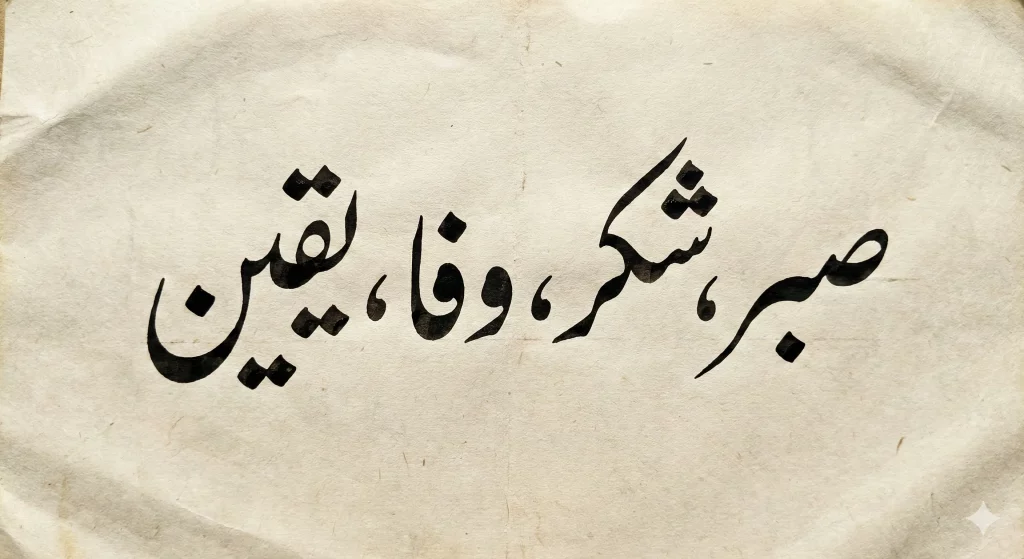 صبر، شکر، وفا، یقین